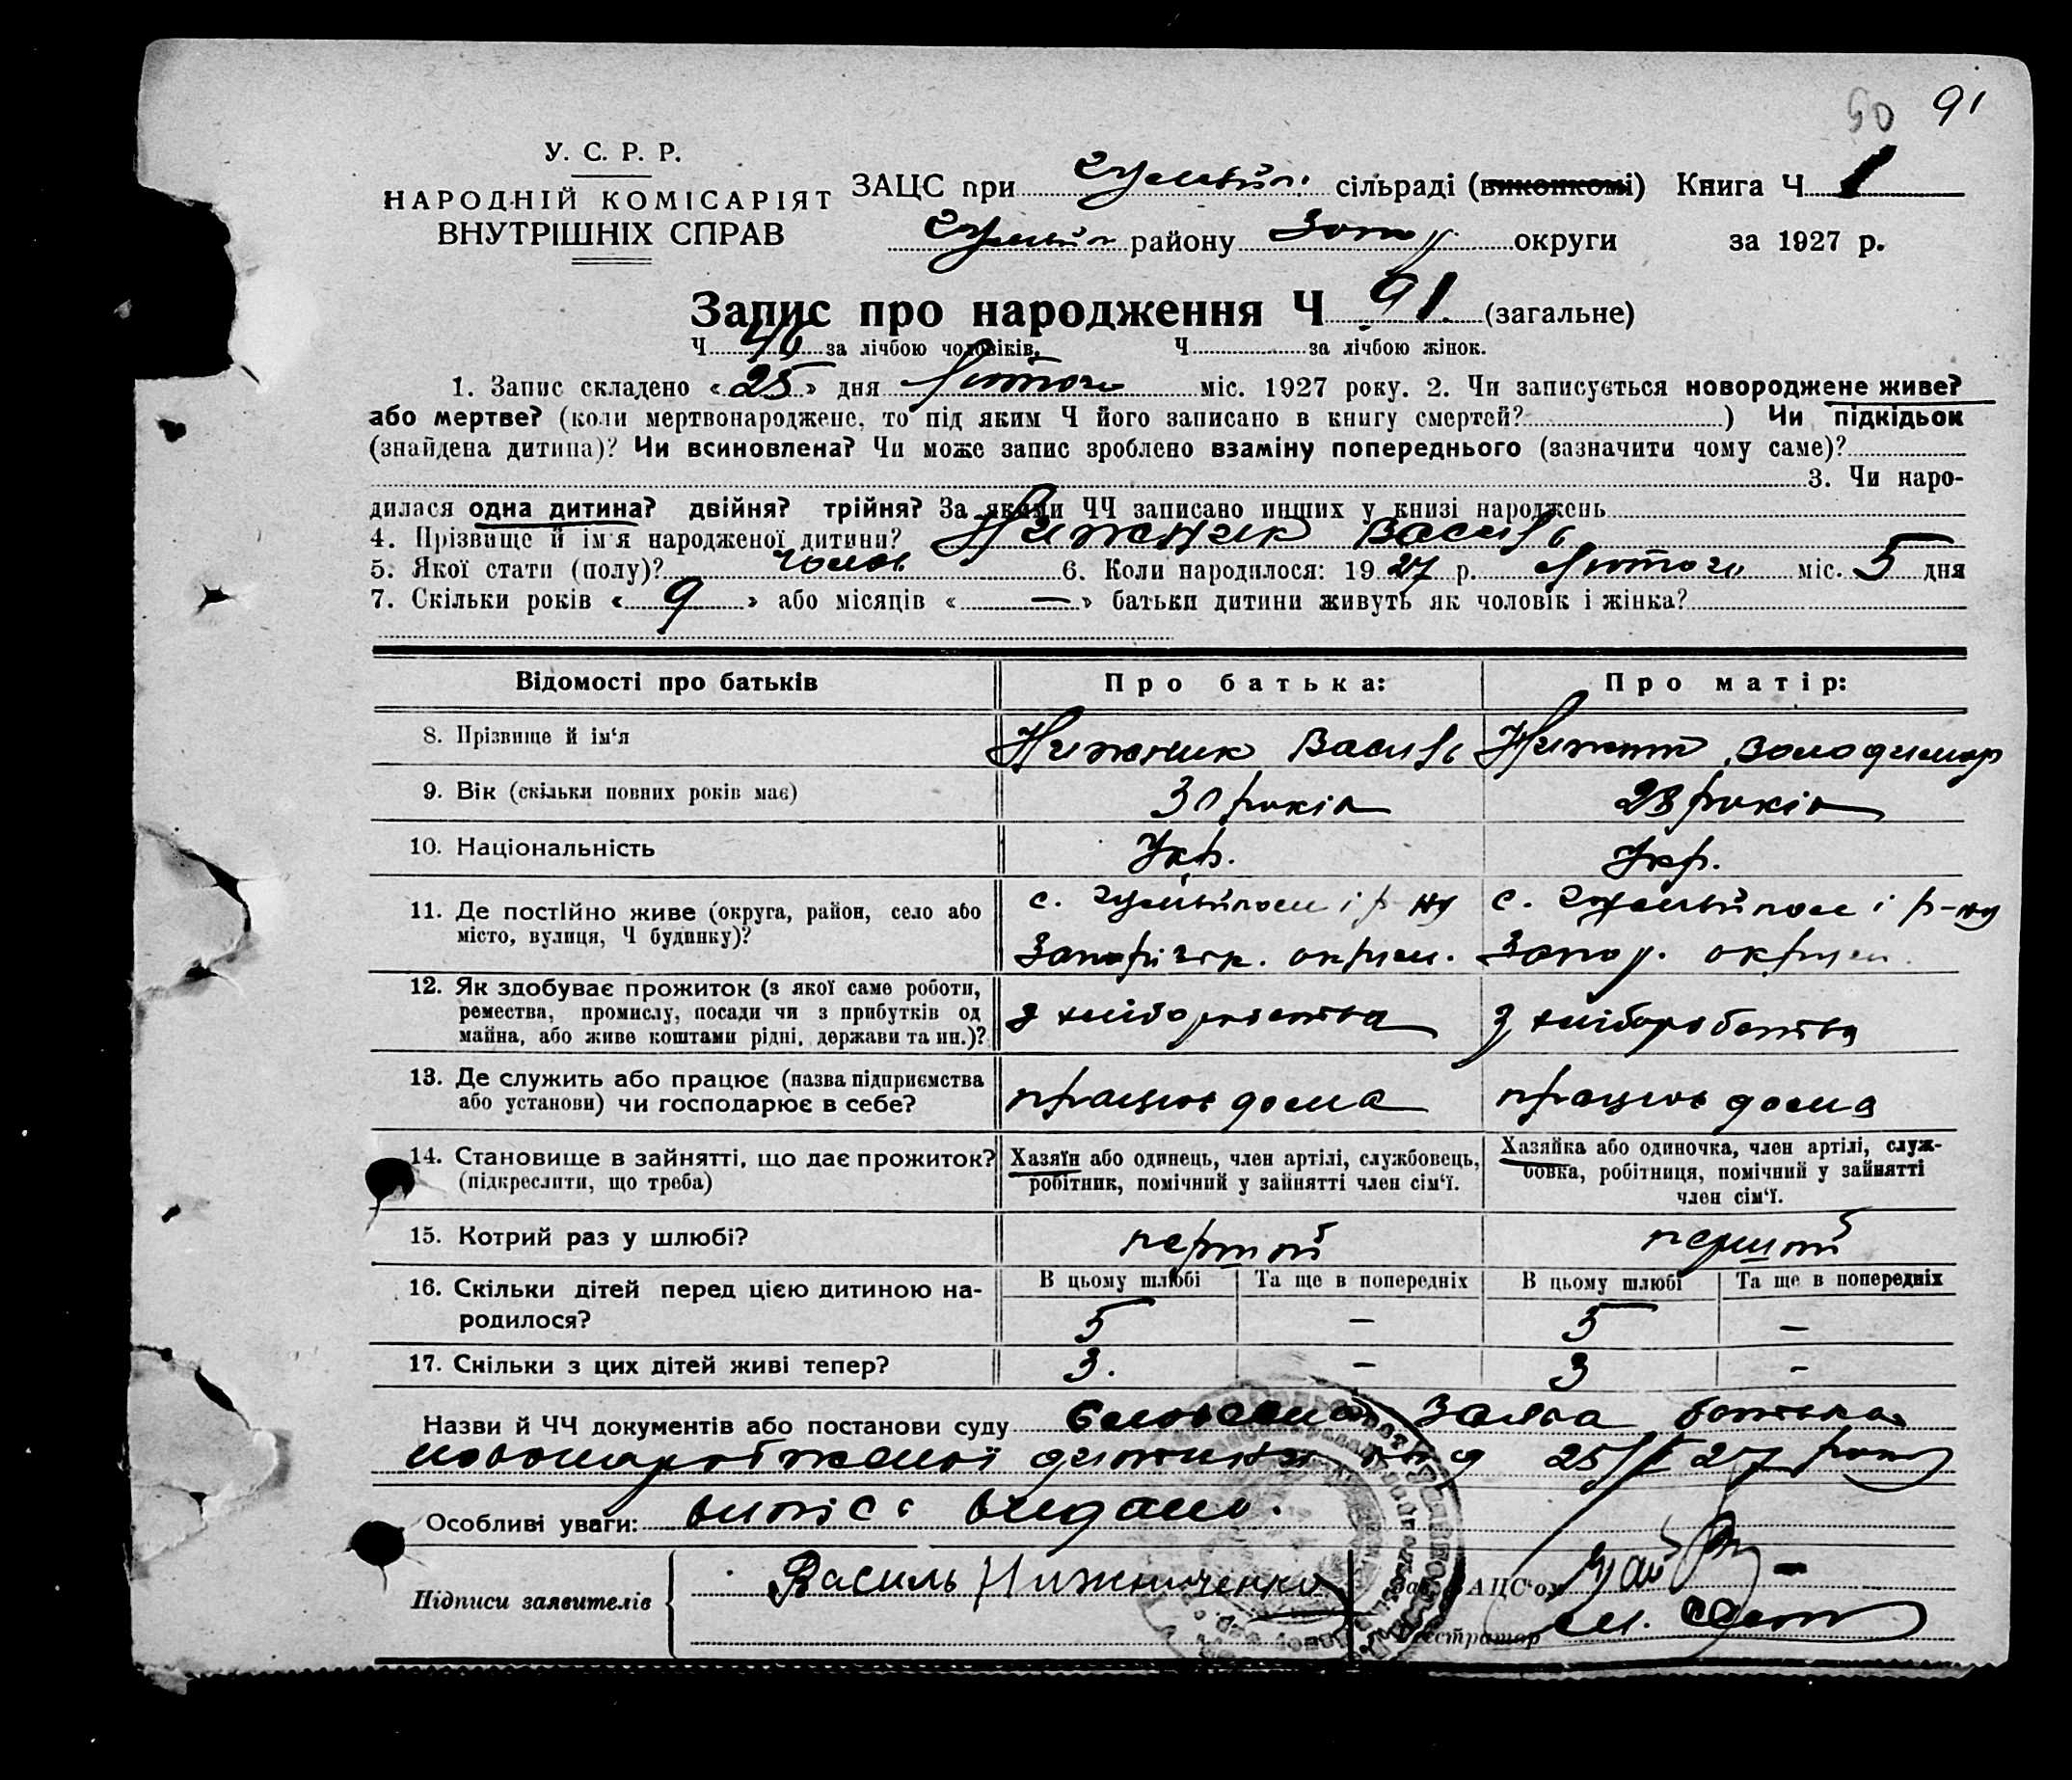 50 91
У. С. Р. Р.
НАРОДНІЙ КОМІСАРІЯТ
ВНУТРІШНІХ СПРАВ
ЗАЦС при Гуляйпіл. сільраді (виконкомі) Книга Ч 1
Гуляйпіл району Запор. округи за 1927 р.
Запис про народження Ч 91. (загальне)
Ч за лічбою чоловіків. Ч за лічбою жінок.
1. Запис складено «25» дня Лютого міс. 1927 року. 2. Чи записується новороджене живе?
або мертве? (коли мертвонароджене, то під яким Ч його записано в книгу смертей? ) Чи підкідьок
(знайдена дитина)? Чи всиновлена? Чи може запис зроблено взаміну попереднього (зазначити чому саме)?
3. Чи наро-
дилася одна дитина? двійня? трійня? За якими ЧЧ записано инших у книзі народжень
4. Прізвище й ім'я народженої дитини? Нижник Василь
5. Якої стати (полу)? чолов 6. Коли народилося: 1927 р. Лютого міс. 5 дня
7. Скільки років «9» або місяців «—» батьки дитини живуть як чоловік і жінка?
Відомості про батьків Про батька: Про матір:
8. Прізвище й ім'я Нижник Василь
9. Вік (скільки повних років має) 30 років 28 років
10. Національність Укр. Укр.
11. Де постійно живе (округа, район, село або місто, вулиця, Ч будинку)?
с. Гуляйполе і р-ну с. Гуляйполе і р-ну
Запоріжж. округи. Запор. округи.
12. Як здобуває прожиток (з якої саме роботи,
ремества, промислу, посади чи з прибутків од
майна, або живе коштами рідні, держави та ин.)?
з хліборобства з хліборобства
13. Де служить або працює (назва підприємства
або установи) чи господарює в себе?
працює дома працює дома
14. Становище в зайнятті, що дає прожиток?
(підкреслити, що треба)
Хазяїн або одинець, член артілі, службовець,
робітник, помічний у зайнятті член сім'ї.
Хазяйка або одиночка, член артілі, служ-
бовка, робітниця, помічний у зайнятті
член сім'ї.
15. Котрий раз у шлюбі? перший перший
16. Скільки дітей перед цією дитиною на-
родилося?
В цьому шлюбі Та ще в попередніх В цьому шлюбі Та ще в попередніх
5 — 5 —
17. Скільки з цих дітей живі тепер? 3. — 3 -
Назви й ЧЧ документів або постанови суду Словесна Заява батька
новонародженої дитини від 25/II 27 року
Особливі уваги: випис видано.
Підписи заявителів Василь Нижниченко Зав. ЗАЦС'ом
Реєстратор